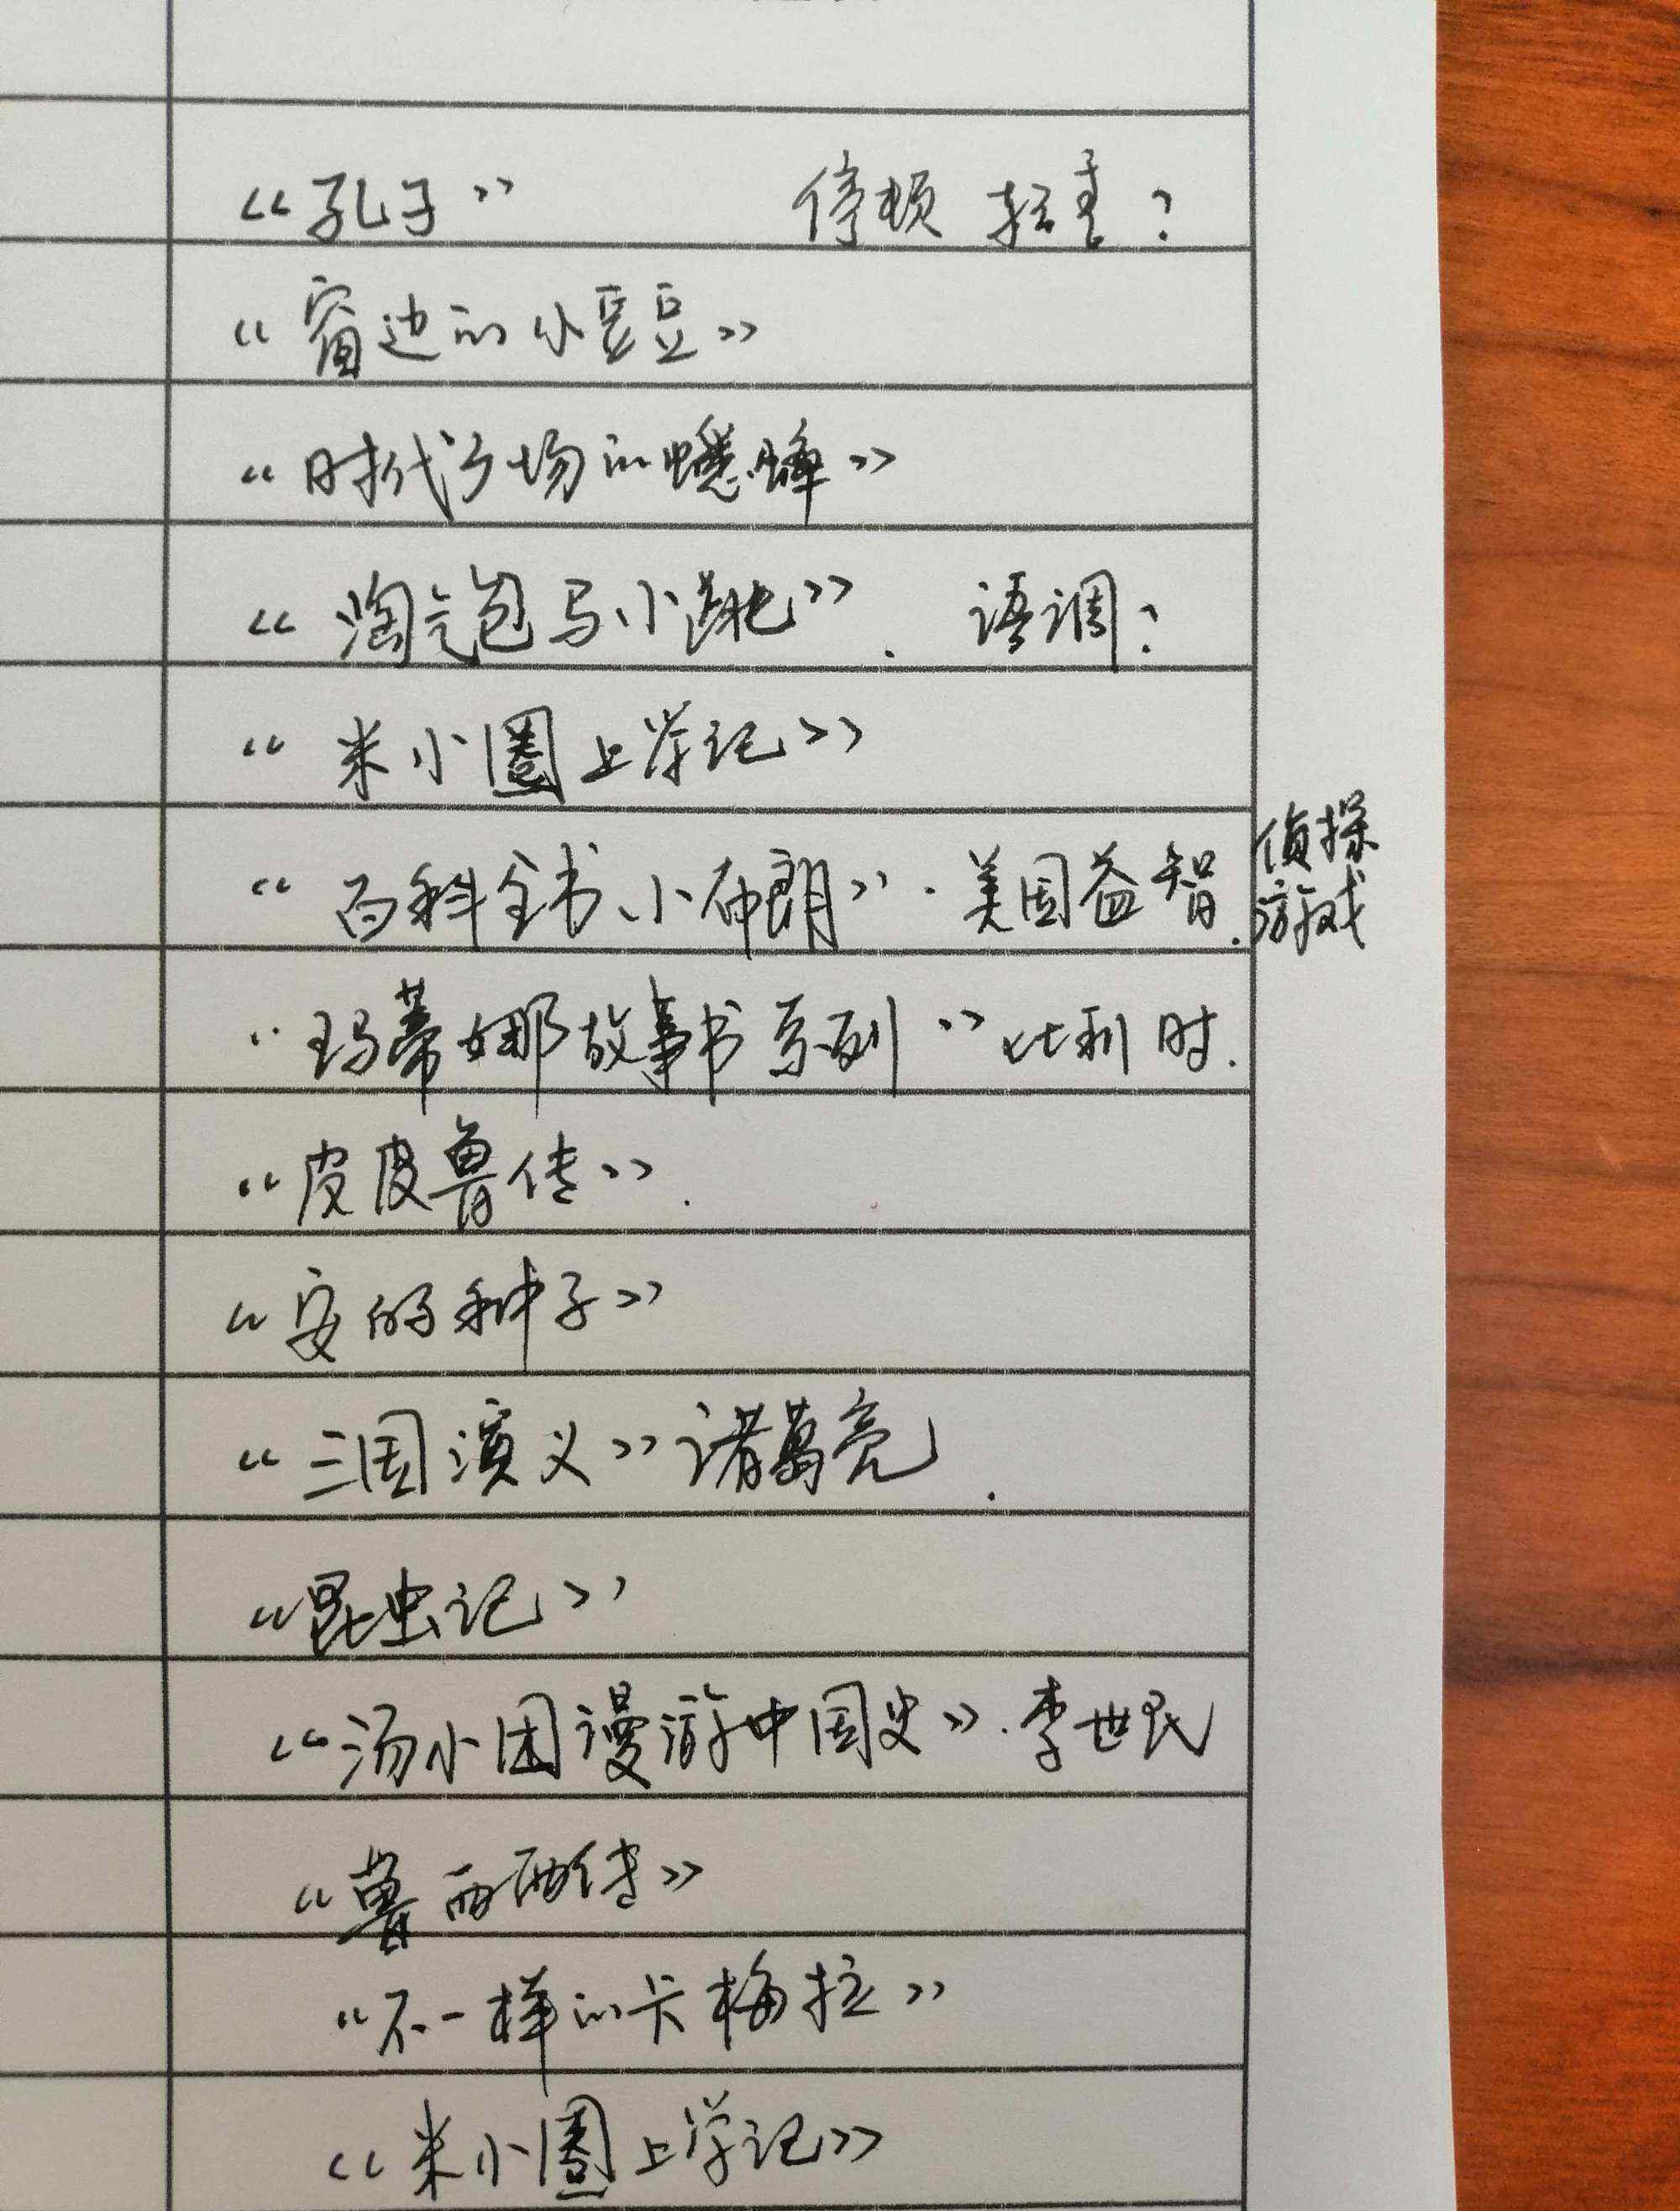 《孔子》 停顿 轻重?
《窗边的小豆豆》
《时代广场的蟋蟀》
《淘气包马小跳》. 语调?
《米小圈上学记》
《百科全书小布朗》. 美国益智. 侦探游戏
《玛蒂娜故事书系列》比利时.
《皮皮鲁传》.
《安的种子》
《三国演义》诸葛亮.
《昆虫记》
《汤小团漫游中国史》. 李世民
《鲁西西传》
《不一样的卡梅拉》
《米小圈上学记》